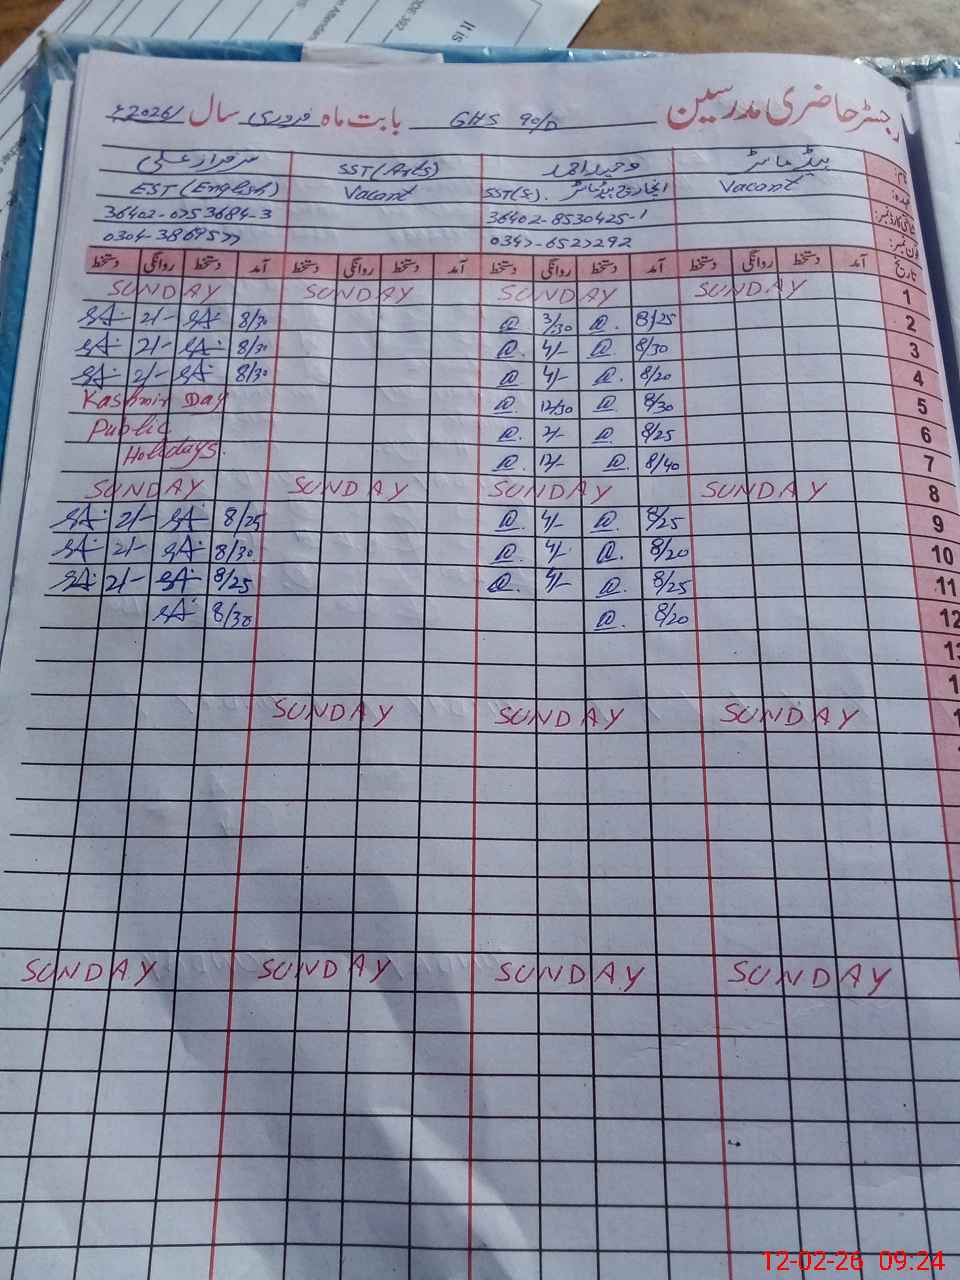 رجسٹر حاضری مدرسین GHS 90/D بابت ماہ فروری سال 2026ء
نام: ہیڈ ماسٹر وحید احمد SST(Arts) سرفراز علی
عہدہ: Vacant SST(Sc). انچارج ہیڈ ماسٹر Vacant EST(English)
شناختی کارڈ نمبر: 36402-8530425-1 36402-0253684-3
فون نمبر:
تاریخ آمد دستخط روانگی دستخط آمد دستخط روانگی دستخط آمد دستخط روانگی دستخط آمد دستخط روانگی دستخط
1 SUNDAY SUNDAY SUNDAY SUNDAY
2 8/25 @. 3/30 @ 8/30 SA. 2/- SA.
3 8/30 @ 4/- @ 8/30 SA. 2/- SA.
4 8/20 @. 4/- @ 8/30 SA. 2/- SA.
5 8/30 @ 12/30 @. Kashmir Day
6 8/25 @ 2/- @. Public
7 8/40 @. 12/- @. Holidays.
8 SUNDAY SUNDAY SUNDAY SUNDAY
9 8/25 @. 4/- @. 8/25 SA. 2/- SA.
10 8/20 @. 4/- @. 8/30 SA. 2/- SA.
11 8/25 @. 4/- @. 8/25 SA. 2/- SA.
12 8/20 @. 8/30 SA.
SUNDAY SUNDAY SUNDAY
SUNDAY SUNDAY SUNDAY SUNDAY
12-02-26 09:24